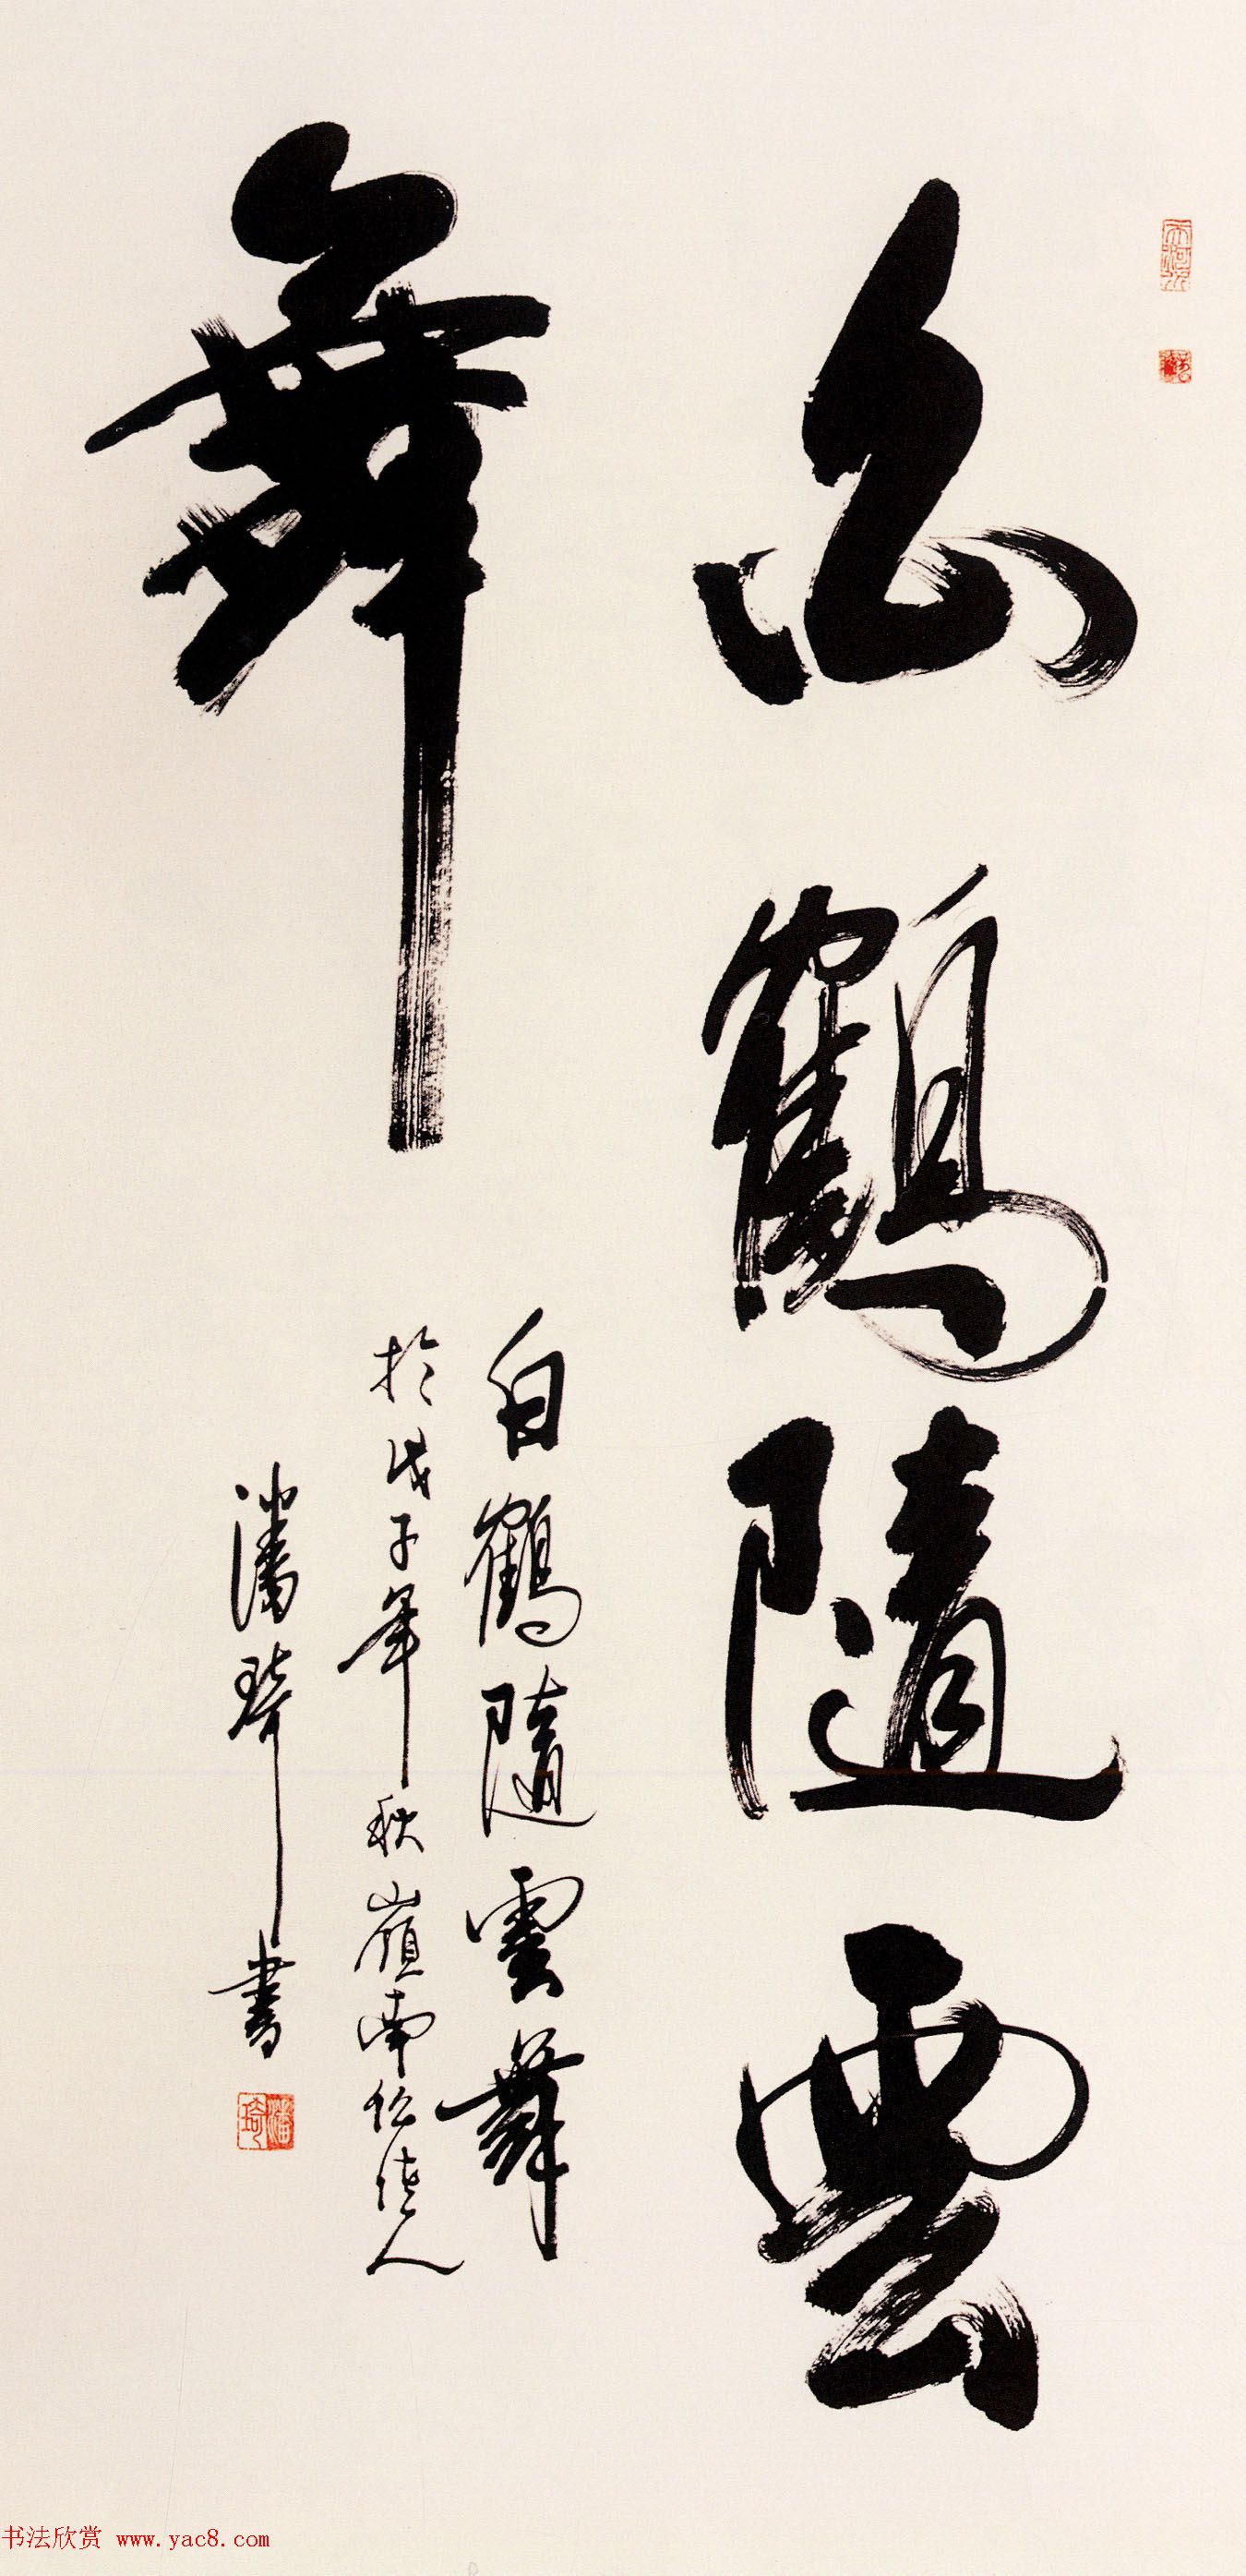 白鶴隨雲
舞
白鶴隨雲舞
於戊子年秋嶺南仫佬人
潘琦書
潘琦
书法欣赏 www.yac8.com